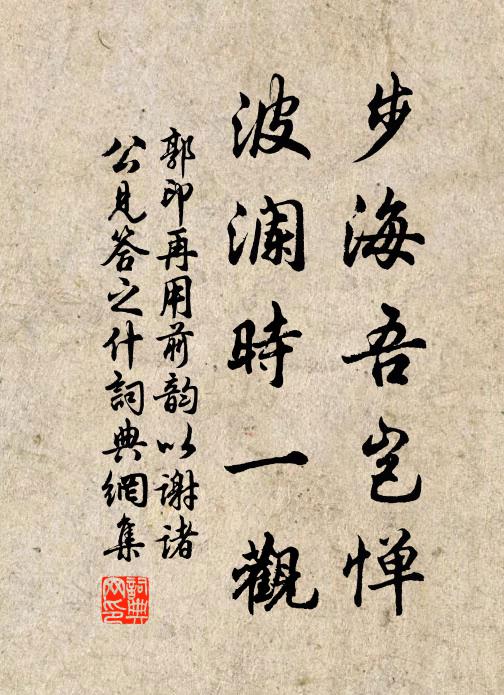 步海吾岂惮
波澜時一觀
郭印再用前韵以谢诸
公見答之什詞典網集
詞典网印